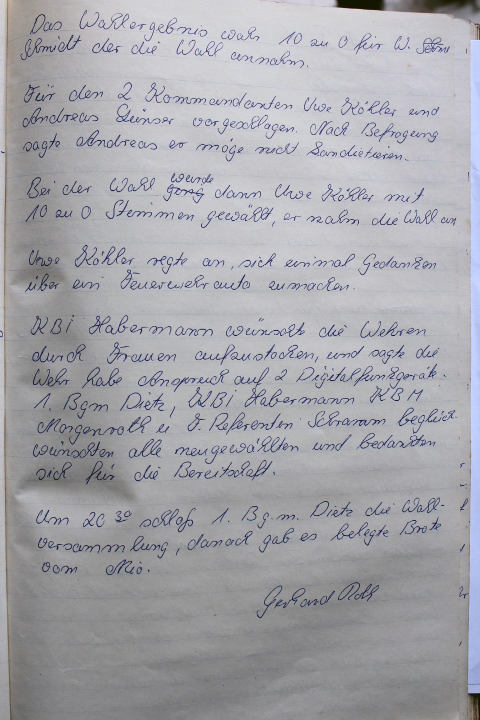 Das Wahlergebnis wahr 10 zu 0 für W.
Schmidt der die Wahl annahm.
Für den 2 Kommandanten Uwe Köhler und
Andreas vorgeschlagen. Nach Befragung
sagte Andreas er möge nicht Kandietieren.
Bei der Wahl wurde dann Uwe Köhler mit
10 zu 0 Stimmen gewählt, er nahm die Wahl an
Uwe Köhler regte an, sich einmal Gedanken
über ein Feuerwehrauto zumachen.
KBI Habermann wünschte die Wehren
durch Frauen aufzustocken, und sagte die
Wehr habe Anspruch auf 2 Digitalfunkgeräte.
1. Bgm Dietz, KBI Habermann KBM
Morgenroth u F. Referenten Schramm beglück
wünschten alle neugewählten und bedankten
sich für die Bereitschaft.
Um 20 30 schloß 1. Bg.m. Dietz die Wahl-
versammlung, danach gab es belegte Brote
vom
Gerhard